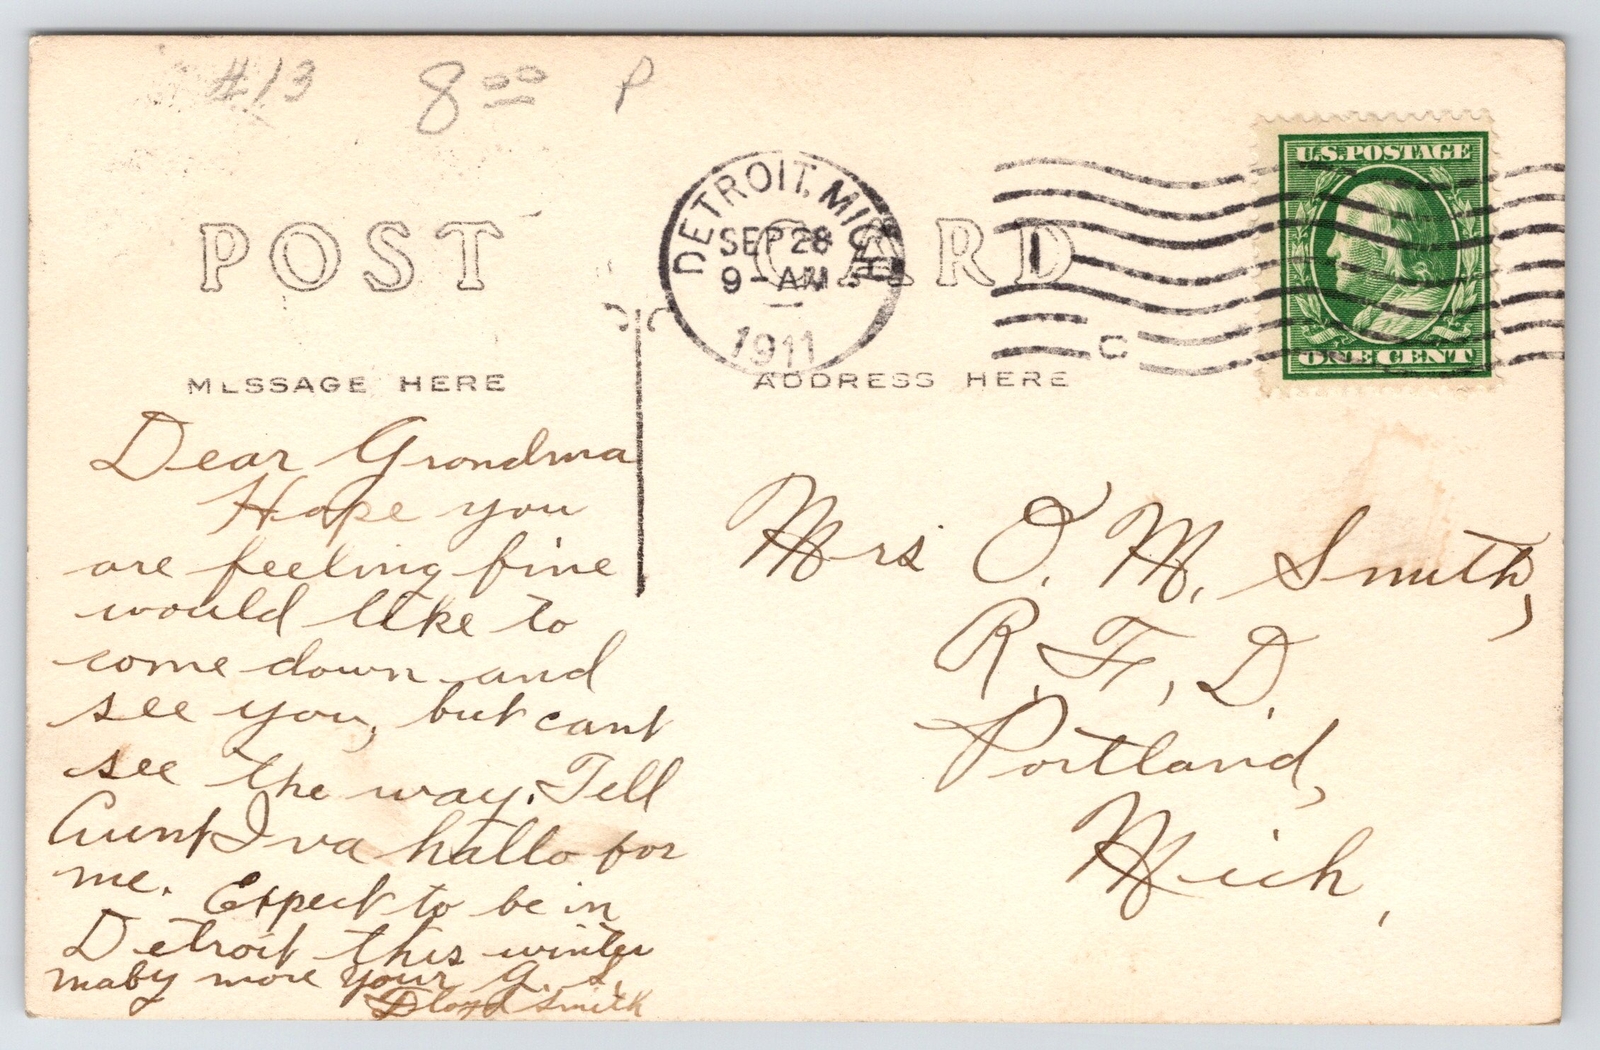 #13 8 00 P
U.S. POSTAGE
DETROIT, MICH.
SEP 28
9 - AM
1911
C
ONE CENT
POST CARD
MESSAGE HERE
ADDRESS HERE
Dear Grandma
Hope you
are feeling fine
would like to
come down and
see you, but cant
see the way. Tell
Aunt Iva hallo for
me. Expect to be in
Detroit this winter
maby more your G. S.
Smith
Mrs O. M. Smith,
R. F. D.
Portland,
Mich,